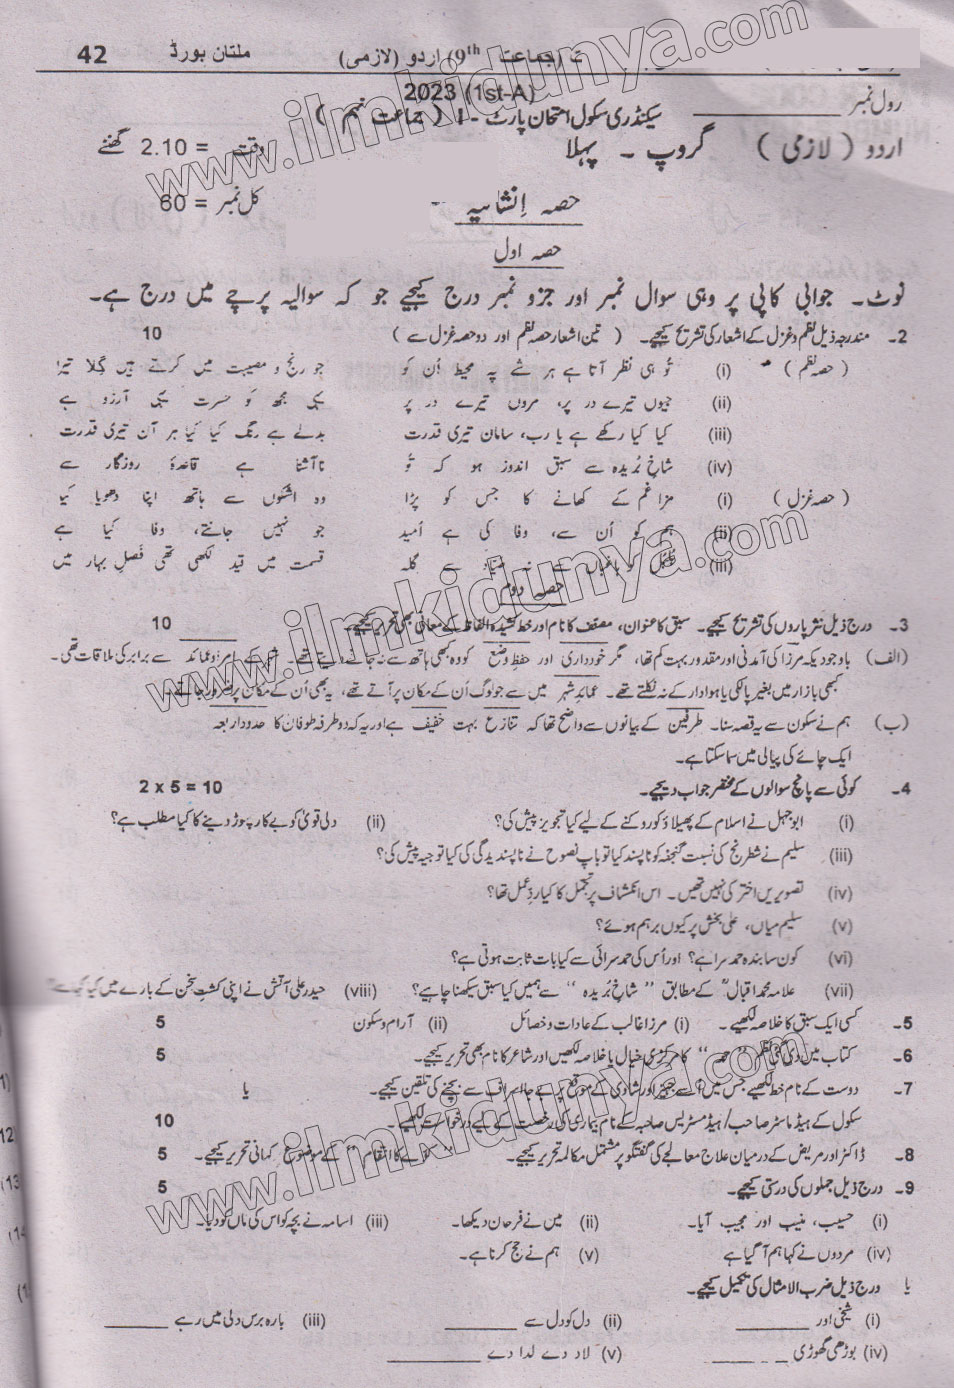 42 ملتان بورڈ (جماعت 9th) اردو (لازمی)
رول نمبر ________ 2023 (1st-A)
سیکنڈری سکول امتحان پارٹ - I (جماعت نہم)
اردو (لازمی) گروپ ۔ پہلا وقت = 2.10 گھنٹے
حصہ اِنشائیہ کل نمبر = 60
حصہ اول
نوٹ۔ جوابی کاپی پر وہی سوال نمبر اور جزو نمبر درج کیجیے جو کہ سوالیہ پرچے میں درج ہے۔
2۔ مندرجہ ذیل نظم و غزل کے اشعار کی تشریح کیجیے۔ (تین اشعار حصہ نظم اور دو حصہ غزل سے) 10
(حصہ نظم) (i) تُو ہی نظر آتا ہے ہر شے پہ محیط اُن کو جو رنج و مصیبت میں کرتے ہیں گلا تیرا
(ii) جیوں تیرے در پر، مروں تیرے در پر یہی مجھ کو حسرت یہی آرزو ہے
(iii) کیا کیا رکھے ہے یا رب، سامان تیری قدرت بدلے ہے رنگ کیا کیا ہر آن تیری قدرت
(iv) شاخِ بُریدہ سے سبق اندوز ہو کہ تُو ناآشنا ہے قاعدۂ روزگار سے
(حصہ غزل) (i) مزا غم کے کھانے کا جس کو پڑا وہ اشکوں سے ہاتھ اپنا دھویا کیا
(ii) ہم کو اُن سے، وفا کی ہے اُمید جو نہیں جانتے، وفا کیا ہے
(iii) بُلبُل کو باغباں سے نہ صیّاد سے گلہ قسمت میں قید لکھی تھی فصلِ بہار میں
حصہ دوم
3۔ درج ذیل نثر پاروں کی تشریح کیجیے۔ سبق کا عنوان، مصنف کا نام اور خط کشیدہ الفاظ کے معانی بھی تحریر کیجیے۔ 10
(الف) باوجودیکہ مرزا کی آمدنی اور مقدور بہت کم تھا، مگر خودداری اور حفظِ وضع کو وہ کبھی ہاتھ سے نہ جانے دیتے تھے۔ شہر کے امرا و عمائد سے برابر کی ملاقات تھی۔
کبھی بازار میں بغیر پالکی یا ہوادار کے نہ نکلتے تھے۔ عمائدِ شہر میں سے جو لوگ اُن کے مکان پر آتے تھے، یہ بھی اُن کے مکان پر ضرور جاتے۔
(ب) ہم نے سکون سے یہ قصہ سنا۔ طرفین کے بیانوں سے واضح تھا کہ تنازع بہت خفیف ہے اور یہ کہ دو طرفہ طوفان کا حدود اربعہ
ایک چائے کی پیالی میں سما سکتا ہے۔
4۔ کوئی سے پانچ سوالوں کے مختصر جواب دیجیے۔ 2 x 5 = 10
(i) ابوجہل نے اسلام کے پھیلاؤ کو روکنے کے لیے کیا تجویز پیش کی؟ (ii) دلی قویٰ کو بے کار چھوڑ دینے کا کیا مطلب ہے؟
(iii) سلیم نے شطرنج کی نسبت گنجفہ کو ناپسند کیا تو باپ نصوح نے ناپسندیدگی کی کیا توجیہ پیش کی؟
(iv) تصویریں اختر کی نہیں تھیں۔ اس انکشاف پر تجمل کا کیا ردِ عمل تھا؟
(v) سلیم میاں، علی بخش پر کیوں برہم ہوئے؟
(vi) کون سا بندہ حمد سرا ہے؟ اور اُس کی حمد سرائی سے کیا بات ثابت ہوتی ہے؟
(vii) علامہ محمد اقبالؒ کے مطابق "شاخِ بُریدہ" سے ہمیں کیا سبق سیکھنا چاہیے؟ (viii) حیدر علی آتش نے اپنی کشتِ سخن کے بارے میں کیا کہا ہے؟
5۔ کسی ایک سبق کا خلاصہ لکھیے۔ (i) مرزا غالب کے عادات و خصائل (ii) آرام و سکون 5
6۔ کتاب میں دی گئی نظم "حمد" کا مرکزی خیال یا خلاصہ لکھیں اور شاعر کا نام بھی تحریر کیجیے۔ 5
7۔ دوست کے نام خط لکھیے جس میں اُسے جہیز اور شادی کے موقع پر بے جا اسراف سے بچنے کی تلقین کیجیے۔ یا
سکول کے ہیڈ ماسٹر صاحب/ہیڈ مسٹریس صاحبہ کے نام بیماری کی رخصت کے لیے درخواست لکھیے۔ 10
8۔ ڈاکٹر اور مریض کے درمیان علاج معالجے کی گفتگو پر مشتمل مکالمہ تحریر کیجیے۔ کا انتقام" کے موضوع پر کہانی تحریر کیجیے۔ 5
9۔ درج ذیل جملوں کی درستی کیجیے۔ 5
(i) حسیب، منیب اور مجیب، آیا۔ (ii) میں نے فرحان دیکھا۔ (iii) اسامہ نے بچہ کو اس کی ماں کو دیا۔
(iv) مردوں نے کہا ہم آ گیا ہے (v) ہم نے حج کرنا ہے۔
یا درج ذیل ضرب الامثال کی تکمیل کیجیے۔
(i) شیخی اور ________ (ii) دل کو دل سے ________ (iii) بارہ برس دلی میں رہے ________
(iv) بوڑھی گھوڑی ________ (v) لاد دے لدا دے ________
www.ilmkidunya.com
www.ilmkidunya.com
www.ilmkidunya.com